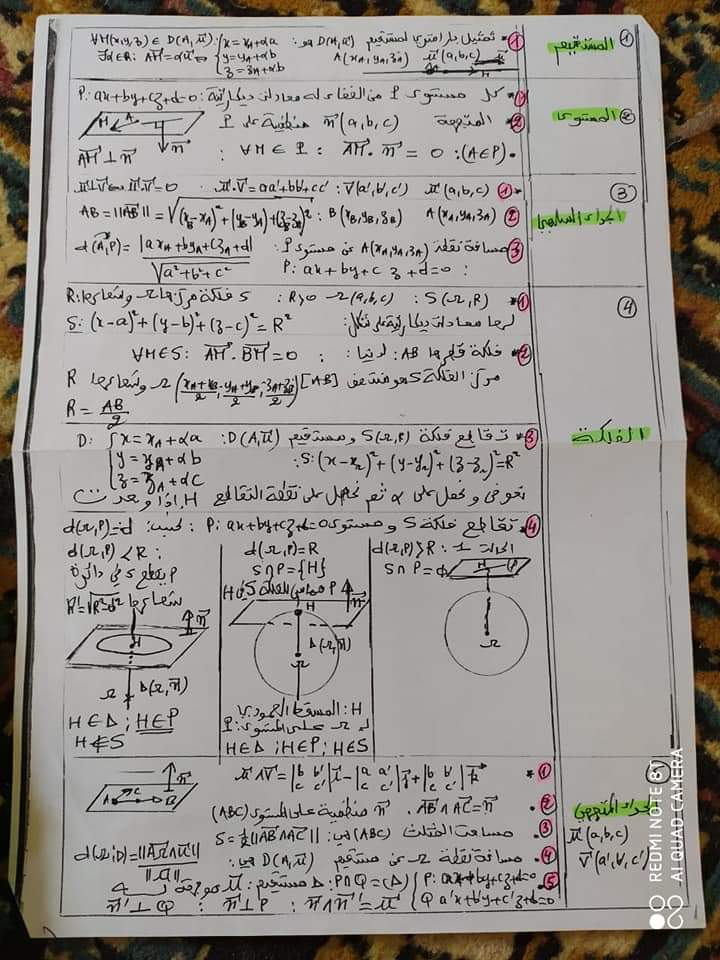 ① المستقيم
1* تمثيل بارامتري لمستقيم D(A,u⃗) هو: ∀M(x,y,z) ∈ D(A,u⃗): { x = xA + αa
A(xA, yA, zA) u⃗(a,b,c) ∃α∈R: AM⃗ = αu⃗ ⇔ { y = yA + αb
{ z = zA + αc
② المستوى
1* كل مستوى P من الفضاء له معادلة ديكارتية: P: ax+by+cz+d=0
2* المتجهة n⃗(a,b,c) منظمية على P
AM⃗ ⊥ n⃗ : ∀M∈P : AM⃗ . n⃗ = 0 : (A∈P).
③ الجداء السلمي
1* u⃗(a,b,c) v⃗(a',b',c') : u⃗.v⃗ = aa'+bb'+cc' u⃗⊥v⃗ ⇔ u⃗.v⃗ = 0
2 A(xA,yA,zA) B(xB,yB,zB) : AB = ||AB⃗|| = √((xB-xA)²+(yB-yA)²+(zB-zA)²)
3 مسافة نقطة A(xA,yA,zA) عن مستوى P : d(A,P) = |axA+byA+czA+d| / √(a²+b²+c²)
P: ax+by+cz+d=0 :
④ الفلكة
1* S(Ω,R) : Ω(a,b,c) R>0 : S فلكة مركزها Ω وشعاعها R:
لها معادلة ديكارتية على شكل: S: (x-a)²+(y-b)²+(z-c)² = R²
2* فلكة قطرها AB: لدينا : ∀M∈S: AM⃗ . BM⃗ = 0
مركز الفلكة S هو منتصف [AB] Ω((xA+xB)/2, (yA+yB)/2, (zA+zB)/2) وشعاعها R
R = AB/2
3* تقاطع فلكة S(Ω,R) و مستقيم D(A,u⃗): D: { x = xA + αa
S: (x-xΩ)²+(y-yΩ)²+(z-zΩ)²=R² { y = yA + αb
{ z = zA + αc
نعوض ونحصل على α ثم نحصل على نقطة التقاطع H إذا وجدت
4* تقاطع فلكة S و مستوى P: ax+by+cz+d=0 نحسب: d(Ω,P)=d
الحالة 1: d(Ω,P) > R
S∩P = ∅
H P
Ω
d(Ω,P) = R
S∩P = {H}
P مماس للفلكة S في H
n⃗
H
Δ(Ω,n⃗)
Ω
H: المسقط العمودي
لـ Ω على المستوى P:
H∈Δ ; H∈P ; H∈S
d(Ω,P) < R :
P يقطع S في دائرة
شعاعها R'=√(R²-d²)
n⃗
H
Ω Δ(Ω,n⃗)
H∈Δ ; H∈P
H∉S
الجداء المتجهي
u⃗(a,b,c)
v⃗(a',b',c')
1* u⃗∧v⃗ = |b b' ; c c'| i⃗ - |a a' ; c c'| j⃗ + |b b' ; c c'| k⃗
2* AB⃗∧AC⃗ = n⃗ . n⃗ منظمية على المستوى (ABC)
A C B n⃗
3. مساحة المثلث (ABC) هي: S = ½ ||AB⃗∧AC⃗||
4* مسافة نقطة Ω عن مستقيم D(A,u⃗) هي: d(Ω;D) = ||AΩ⃗∧u⃗|| / ||u⃗||
5* { P: ax+by+cz+d=0 P∩Q = (Δ) : Δ مستقيم: u⃗ موجهة له
{ Q a'x+b'y+c'z+d=0 n⃗∧n⃗' = u⃗ : n⃗⊥P : n⃗'⊥Q
REDMI NOTE 8T
AI QUAD CAMERA